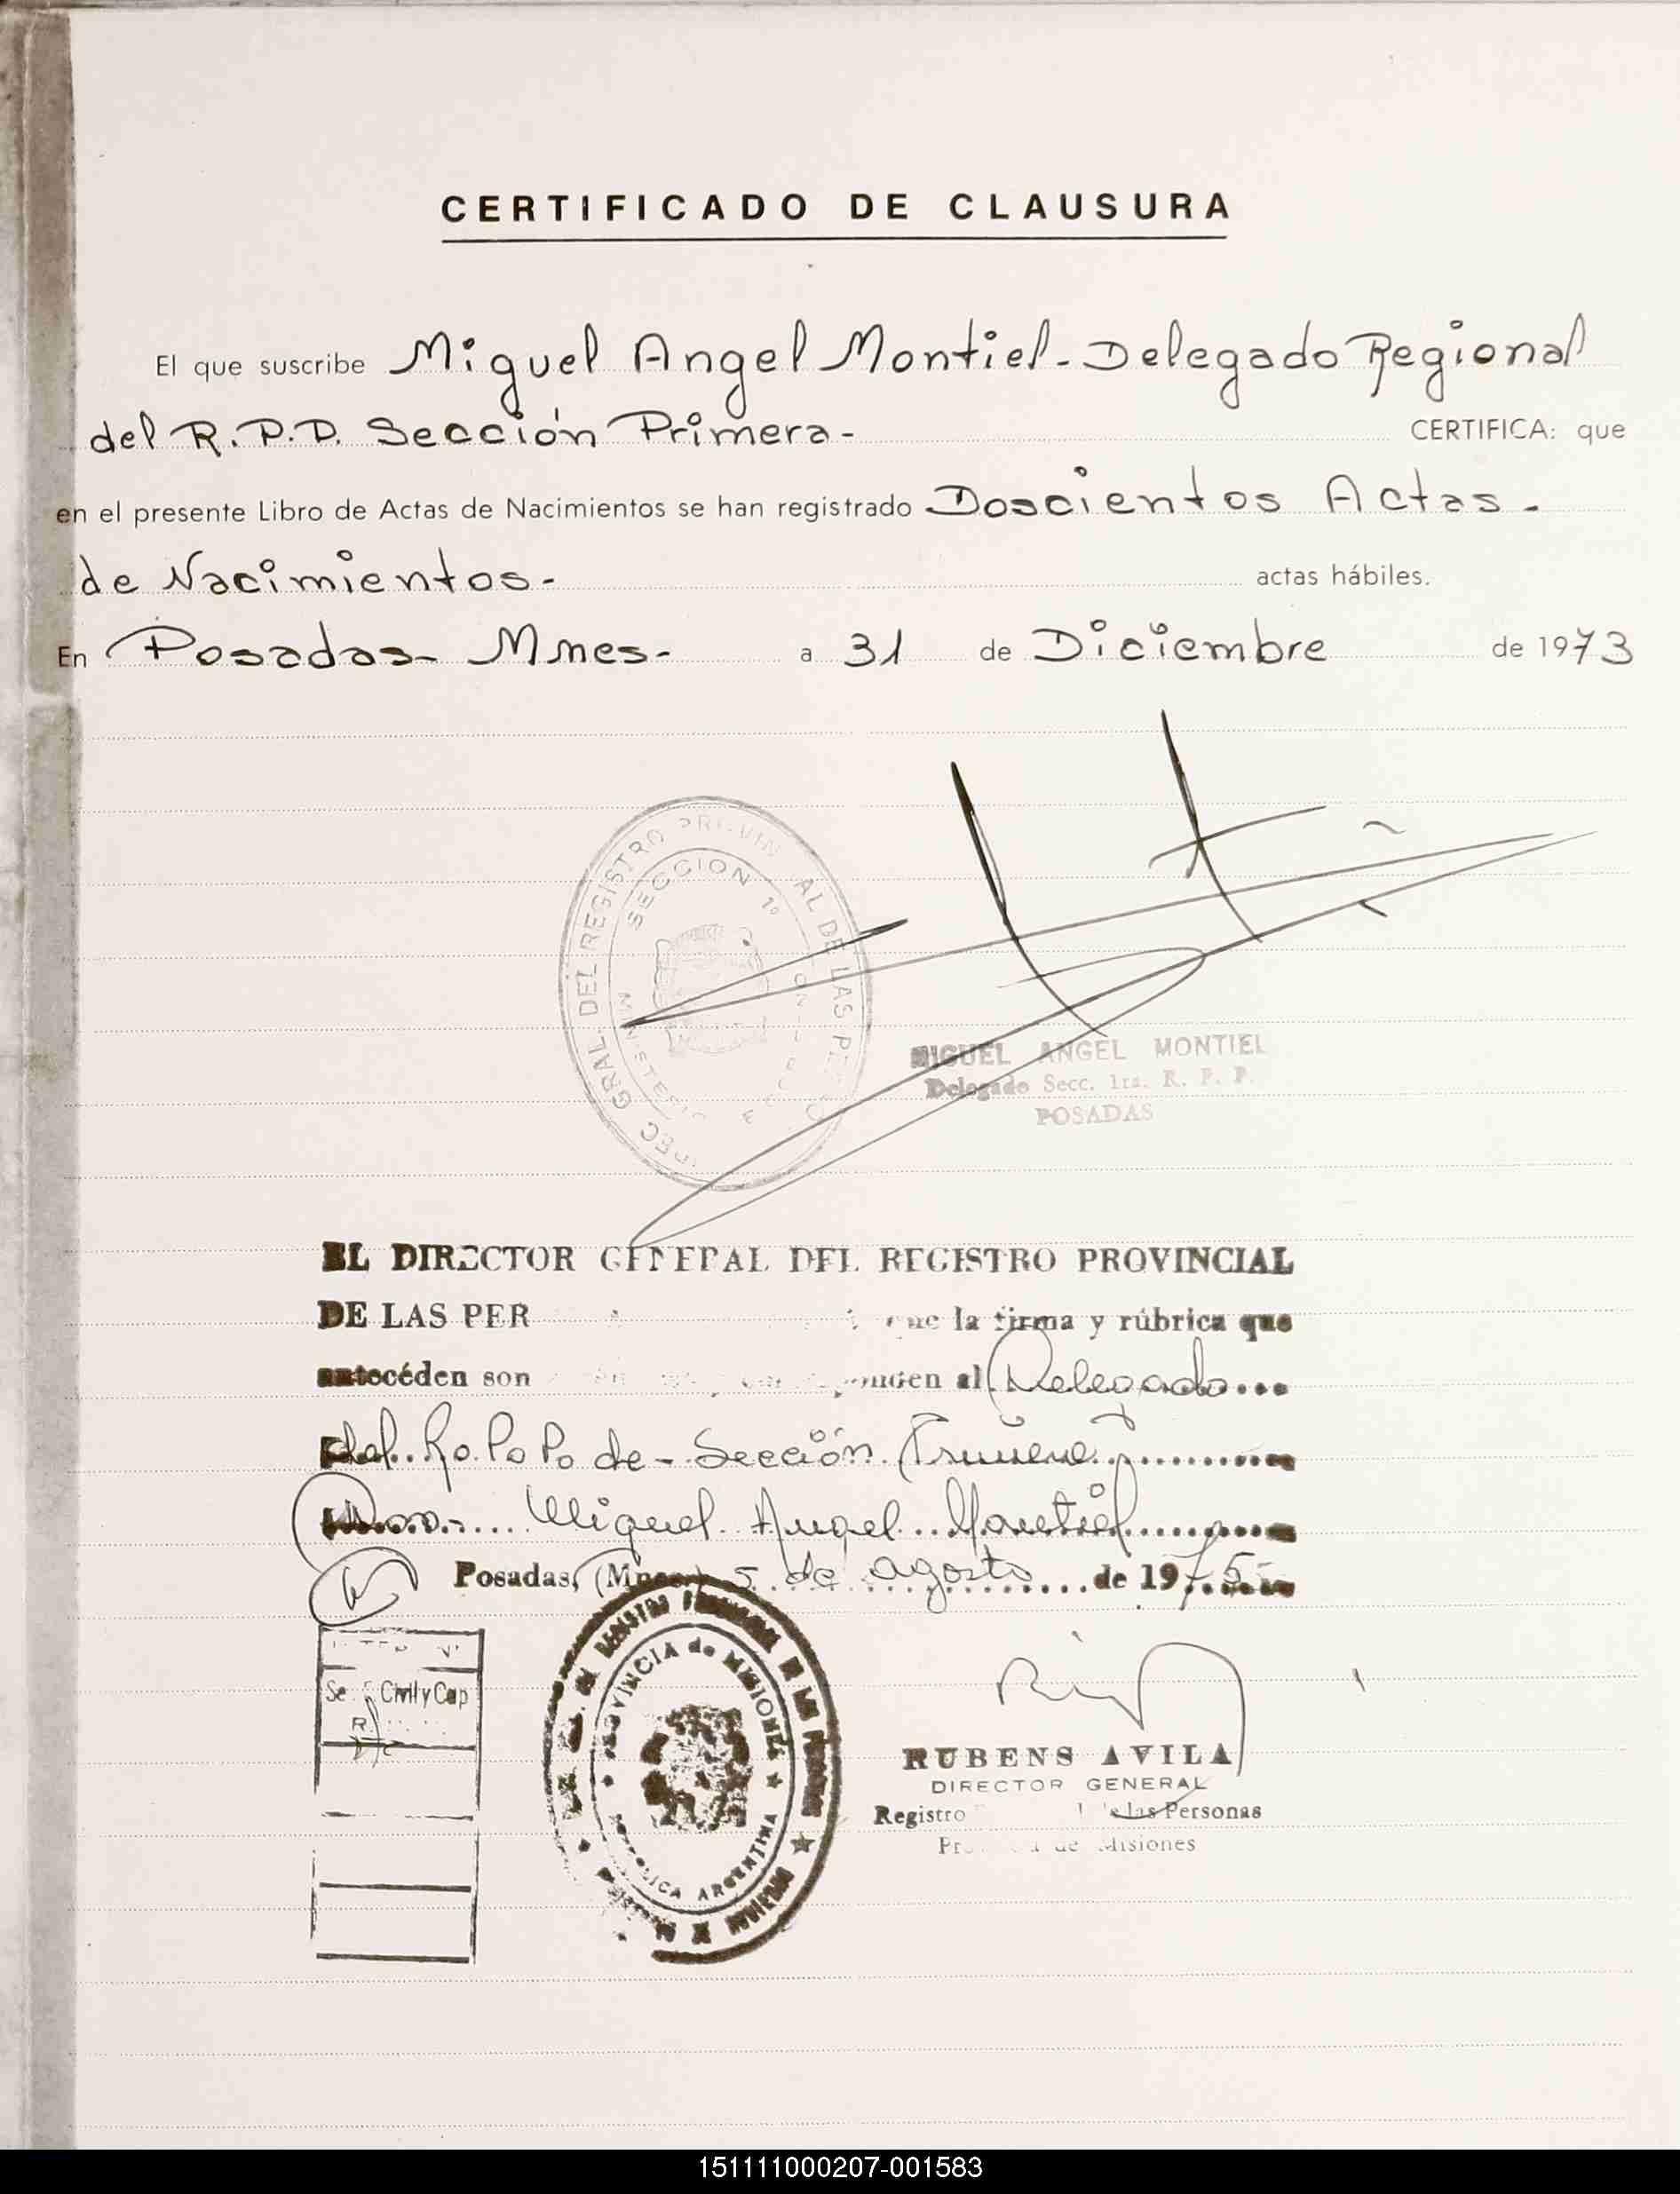 CERTIFICADO DE CLAUSURA
El que suscribe Miguel Angel Montiel - Delegado Regional
del R.P.D. Sección Primera - CERTIFICA: que
en el presente Libro de Actas de Nacimientos se han registrado Doscientos Actas -
de Nacimientos - actas hábiles.
En Posadas - Mnes - a 31 de Diciembre de 1973
GRAL. DEL REGISTRO AL DE LAS
SECCION 1º
MIGUEL ANGEL MONTIEL
Delegado Secc. 1ra. R. P. P.
POSADAS
EL DIRECTOR GENERAL DEL REGISTRO PROVINCIAL
DE LAS PER que la firma y rúbrica que
antecéden son al Delegado
del Ro Po Po de - Sección Primera
Don Miguel Angel Montiel
Posadas, (Mnes.) 5 de agosto de 1975
Civil y Cap
PROVINCIA de MISIONES
REPUBLICA ARGENTINA
RUBENS AVILA
DIRECTOR GENERAL
Registro de las Personas
de Misiones
151111000207-001583